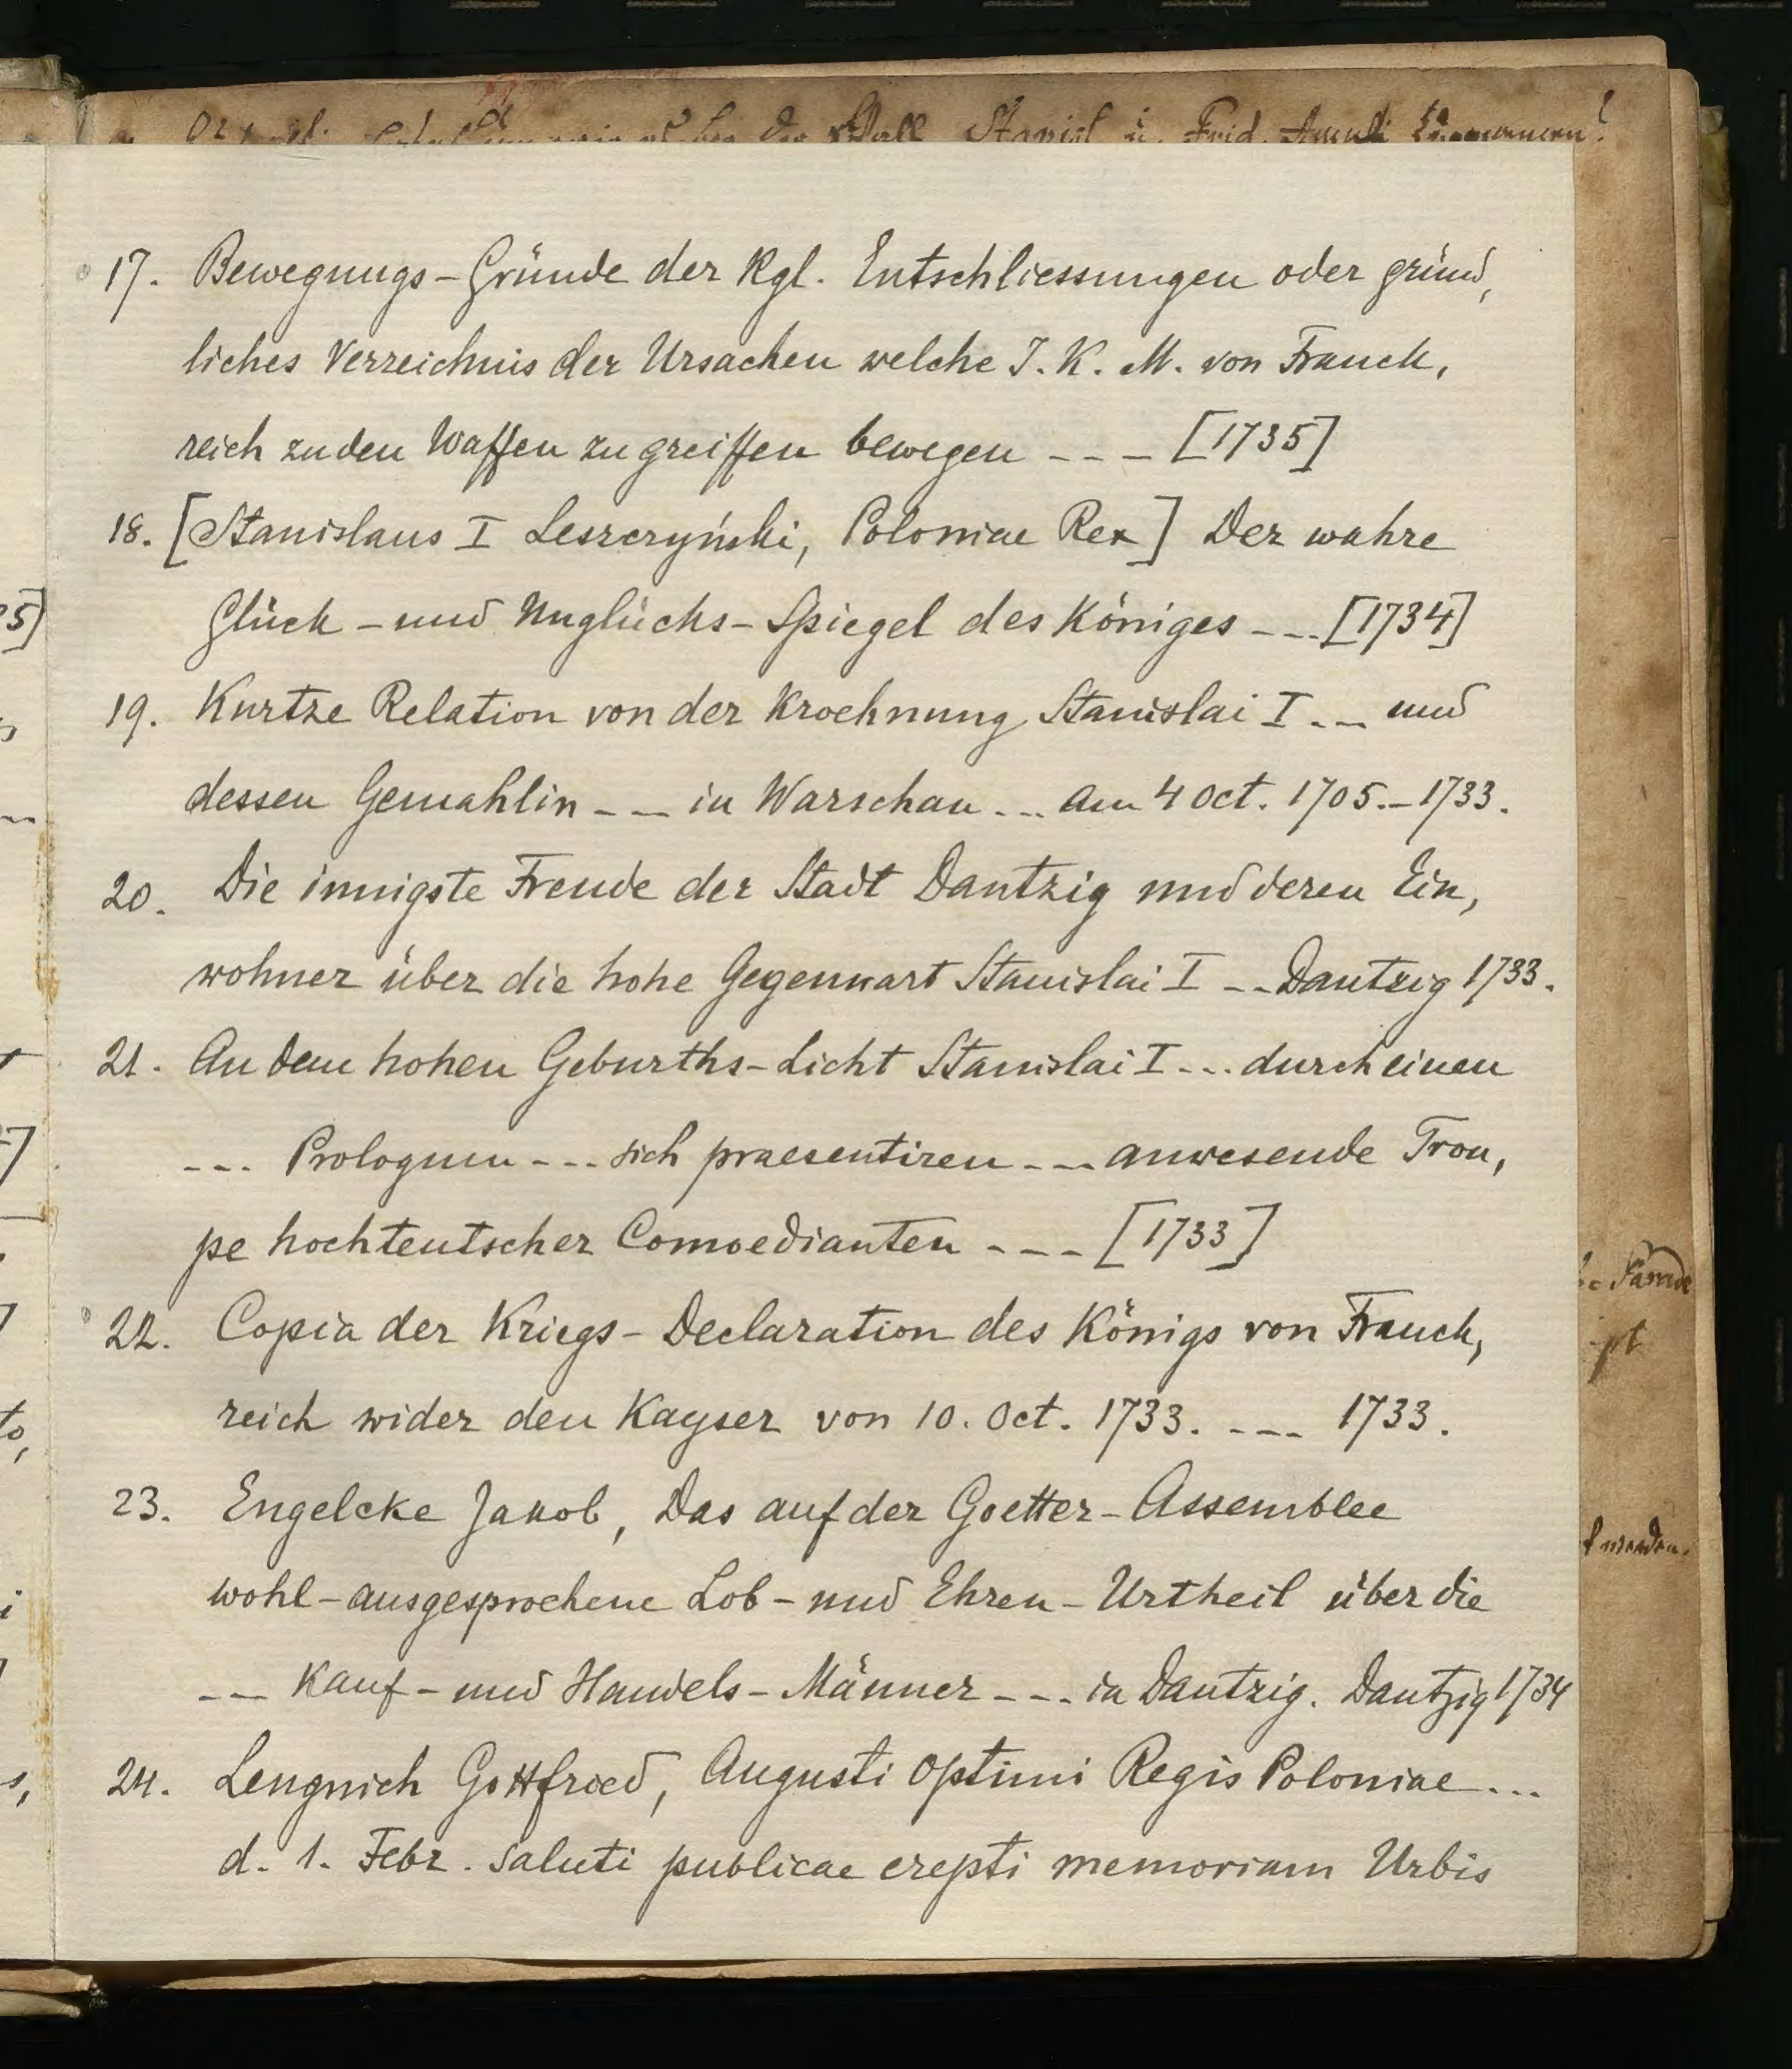 Stanisl u. Frid.
17. Bewegungs-Gründe der Kgl. Entschliessungen oder gründ,
liches Verzeichnis der Ursachen welche J. K. M. von Franck,
reich zu den Waffen zu greiffen bewegen --- [1735]
18. [Stanislaus I Leszczyński, Poloniae Rex] Der wahre
Glück-und Unglücks-Spiegel des Königes --- [1734]
19. Kurtze Relation von der Kroehnung Stanislai I --- und
dessen Gemahlin --- in Warschau --- am 4 Oct. 1705.-1733.
20. Die innigste Freude der Stadt Dantzig und deren Ein,
wohner über die hohe Gegenwart Stanislai I -- Dantzig 1733.
21. An dem hohen Geburths-Licht Stanislai I --- durch einen
--- Prologum --- sich praesentiren --- anwesende Trou,
pe hochteutscher Comoedianten --- [1733]
22. Copia der Kriegs-Declaration des Königs von Franck,
reich wider den Kayser von 10. Oct. 1733. --- 1733.
23. Engelcke Jakob, Das auf der Goetter-Assemblee
wohl-ausgesprochene Lob-und Ehren-Urtheil über die
--- Kauf-und Handels-Männer --- in Dantzig. Dantzig 1734
24. Lengnich Gottfried, Augusti Optimi Regis Poloniae ...
d. 1. Febr. saluti publicae erepti memoriam Urbis